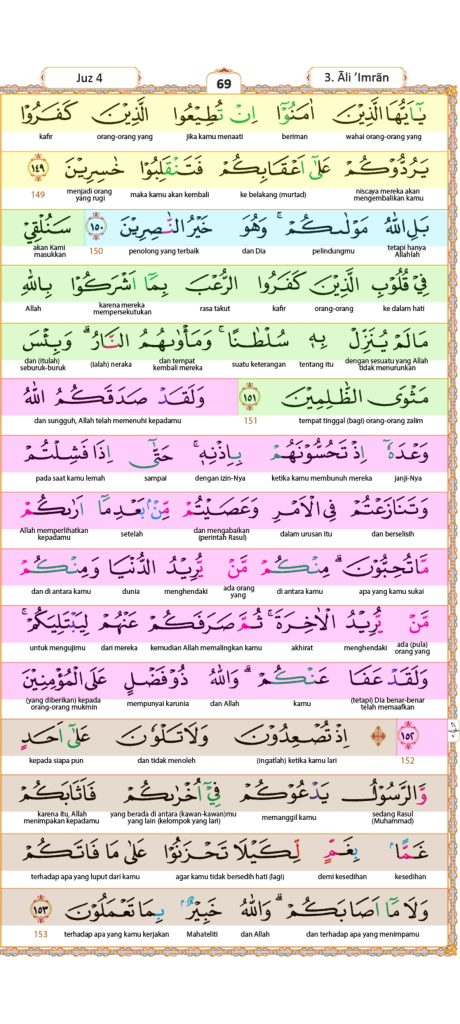 Juz 4
69
3. Āli ʻImrān
يٰٓاَيُّهَا الَّذِيْنَ اٰمَنُوْٓا اِنْ تُطِيْعُوا الَّذِيْنَ كَفَرُوْا
wahai orang-orang yang beriman jika kamu menaati orang-orang yang kafir
يَرُدُّوْكُمْ عَلٰٓى اَعْقَابِكُمْ فَتَنْقَلِبُوْا خٰسِرِيْنَ ١٤٩
niscaya mereka akan mengembalikan kamu ke belakang (murtad) maka kamu akan kembali menjadi orang yang rugi 149
بَلِ اللّٰهُ مَوْلٰىكُمْ ۚ وَهُوَ خَيْرُ النّٰصِرِيْنَ ١٥٠ سَنُلْقِيْ
tetapi hanya Allahlah pelindungmu dan Dia penolong yang terbaik 150 akan Kami masukkan
فِيْ قُلُوْبِ الَّذِيْنَ كَفَرُوا الرُّعْبَ بِمَآ اَشْرَكُوْا بِاللّٰهِ
ke dalam hati orang-orang kafir rasa takut karena mereka mempersekutukan Allah
مَا لَمْ يُنَزِّلْ بِهٖ سُلْطٰنًا ۚ وَمَأْوٰىهُمُ النَّارُ ۗ وَبِئْسَ
dengan sesuatu yang Allah tidak menurunkan tentang itu suatu keterangan dan tempat kembali mereka (ialah) neraka dan (itulah) seburuk-buruk
مَثْوَى الظّٰلِمِيْنَ ١٥١ وَلَقَدْ صَدَقَكُمُ اللّٰهُ
tempat tinggal (bagi) orang-orang zalim 151 dan sungguh, Allah telah memenuhi kepadamu
وَعْدَهٗٓ اِذْ تَحُسُّوْنَهُمْ بِاِذْنِهٖ ۚ حَتّٰىٓ اِذَا فَشِلْتُمْ
janji-Nya ketika kamu membunuh mereka dengan izin-Nya sampai pada saat kamu lemah
وَتَنَازَعْتُمْ فِى الْاَمْرِ وَعَصَيْتُمْ مِّنْۢ بَعْدِ مَآ اَرٰىكُمْ
dan berselisih dalam urusan itu dan mengabaikan (perintah Rasul) setelah Allah memperlihatkan kepadamu
مَّا تُحِبُّوْنَ ۗ مِنْكُمْ مَّنْ يُّرِيْدُ الدُّنْيَا وَمِنْكُمْ
apa yang kamu sukai di antara kamu ada orang yang menghendaki dunia dan di antara kamu
مَّنْ يُّرِيْدُ الْاٰخِرَةَ ۚ ثُمَّ صَرَفَكُمْ عَنْهُمْ لِيَبْتَلِيَكُمْ ۚ
ada (pula) orang yang menghendaki akhirat kemudian Allah memalingkan kamu dari mereka untuk mengujimu
وَلَقَدْ عَفَا عَنْكُمْ ۗ وَاللّٰهُ ذُوْ فَضْلٍ عَلَى الْمُؤْمِنِيْنَ
(tetapi) Dia benar-benar telah memaafkan kamu dan Allah mempunyai karunia (yang diberikan) kepada orang-orang mukmin
١٥٢ ۞ اِذْ تُصْعِدُوْنَ وَلَا تَلْوٗنَ عَلٰٓى اَحَدٍ
152 (ingatlah) ketika kamu lari dan tidak menoleh kepada siapa pun
وَّالرَّسُوْلُ يَدْعُوْكُمْ فِيْٓ اُخْرٰىكُمْ فَاَثَابَكُمْ
sedang Rasul (Muhammad) memanggil kamu yang berada di antara (kawan-kawan)mu yang lain (kelompok yang lari) karena itu, Allah menimpakan kepadamu
غَمًّا ۢبِغَمٍّ لِّكَيْلَا تَحْزَنُوْا عَلٰى مَا فَاتَكُمْ
kesedihan demi kesedihan agar kamu tidak bersedih hati (lagi) terhadap apa yang luput dari kamu
وَلَا مَآ اَصَابَكُمْ ۗ وَاللّٰهُ خَبِيْرٌ ۢبِمَا تَعْمَلُوْنَ ١٥٣
dan terhadap apa yang menimpamu dan Allah Mahateliti terhadap apa yang kamu kerjakan 153